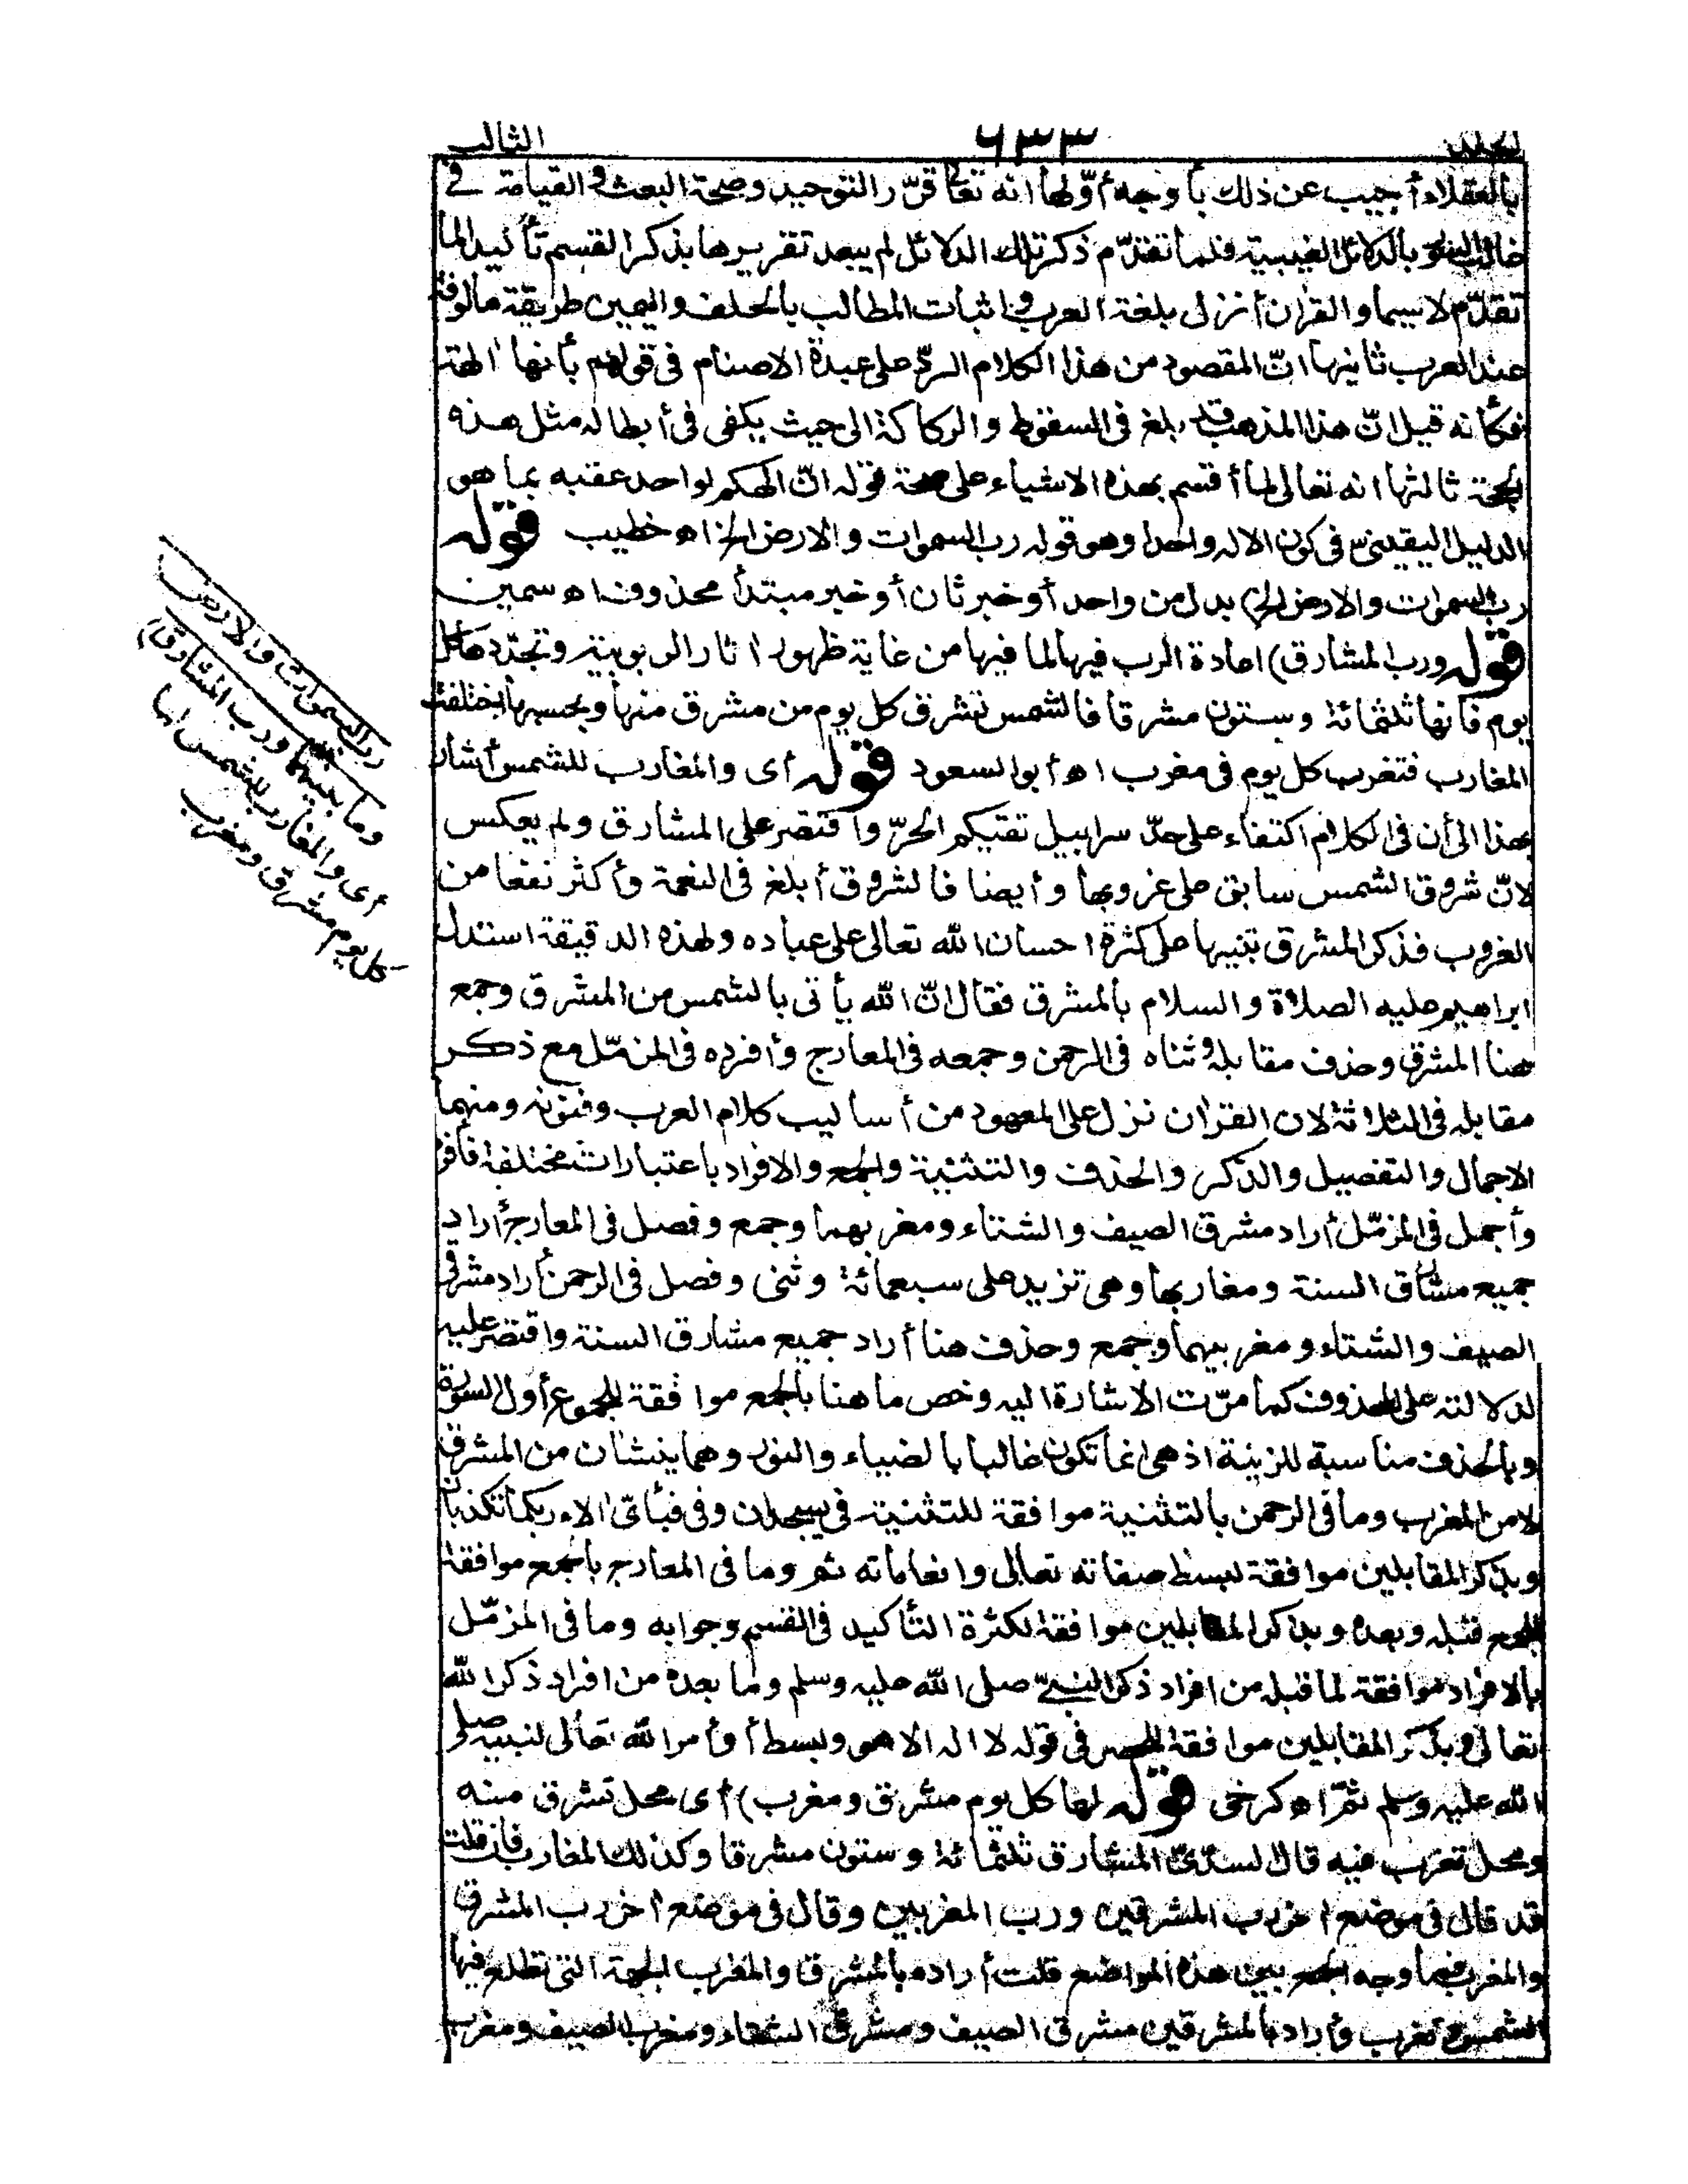 الثالث
٦٣٣
بالعقلاء أجيب عن ذلك بأوجه أوّلها انه تعالى قرّر التوحيد وصحة البعث والقيامة في
غالب السور بالدلائل اليقينية فلما تقدّم ذكر تلك الدلائل لم يبعد تقريرها بذكر القسم تأكيد الما
تقدّم لا سيما والقرآن أنزل بلغة العرب واثبات المطالب بالحلف واليمين طريقة مألوفة
عند العرب ثانيها انّ المقصود من هذا الكلام الردّ على عبدة الاصنام في قولهم بأنها آلهة
فكأنه قيل انّ هذا المذهب قد بلغ في السقوط والركاكة الى حيث يكفى في أبطاله مثل هذه
الحجة ثالثها انه تعالى لما أقسم بهذه الاشياء على صحة قوله انّ الهكم لواحد عقبه بما هو
الدليل اليقينىّ في كون الاله واحدا وهو قوله رب السموات والارض الخ اه خطيب قوله
رب السموات والارض الخ) بدل من واحد أو خبر ثان أو خبر مبتدأ محذوف اه سمين
قوله ورب المشارق) اعادة الرب فيها لما فيها من غاية ظهور آثار الربوبية وتجدّدها كل
يوم فانها ثلثمائة وستون مشرقا فالشمس تشرق كل يوم من مشرق منها وبحسبها اختلفت
المغارب فتغرب كل يوم في مغرب اه أبو السعود قوله أى والمغارب للشمس أشار
بهذا الى أن في الكلام اكتفاء على حدّ سرابيل تقيكم الحرّ واقتصر على المشارق ولم يعكس
لانّ شروق الشمس سابق على غروبها وأيضا فالشروق أبلغ في النعمة وأكثر نفعا من
الغروب فذكر المشرق تنبيها على كثرة احسان الله تعالى على عباده ولهذه الدقيقة استدل
ابراهيم عليه الصلاة والسلام بالمشرق فقال انّ الله يأتى بالشمس من المشرق وجمع
هنا المشرق وحذف مقابله وثناه في الرحمن وجمعه في المعارج وأفرده في المزمّل مع ذكر
مقابله في الثلاثة لان القرآن نزل على المعهود من أساليب كلام العرب وفنونه ومنهما
الاجمال والتفصيل والذكر والحذف والتثنية والجمع والافراد باعتبارات مختلفة فأفرد
وأجمل في المزمّل أراد مشرق الصيف والشتاء ومغربهما وجمع وفصل في المعارج أراد
جميع مشارق السنة ومغاربها وهى تزيد على سبعمائة وثنى وفصل في الرحمن أراد مشرقى
الصيف والشتاء ومغربيهما وجمع وحذف هنا أراد جميع مشارق السنة واقتصر عليه
لدلالته على المحذوف كما مرّت الاشارة اليه وخص ما هنا بالجمع موافقة للجموع أول السورة
وبالحذف مناسبة للزينة اذ هى انما تكون غالبا بالضياء والنور وهما ينشأن من المشرق
لا من المغرب وما في الرحمن بالتثنية موافقة للتثنية في يسجدان وفي فبأىّ آلاء ربكما تكذبان
وبذكر المقابلين موافقة لبسط صفاته تعالى وانعاماته ثم وما في المعارج بالجمع موافقة
للجمع قبله وبعده وبذكر المقابلين موافقة لكثرة التأكيد في القسم وجوابه وما في المزمّل
بالافراد موافقة لما قبله من افراد ذكر النبىّ صلى الله عليه وسلم وما بعده من افراد ذكر الله
تعالى وبذكر المقابلين موافقة للحصر في قوله لا اله الا هو ولبسط أوأمر الله تعالى لنبيه صلى
الله عليه وسلم ثمّ اه كرخى قوله لها كل يوم مشرق ومغرب) أى محل تشرق منه
ومحل تغرب فيه قال السدّىّ المشارق ثلثمائة وستون مشرقا وكذلك المغارب فان قلت
قد قال في موضع آخر رب المشرقين ورب المغربين وقال في موضع آخر رب المشرق
والمغرب فما وجه الجمع بين هذه المواضع قلت أراد بالمشرق والمغرب الجهة التى تطلع فيها
الشمس وتغرب وأراد بالمشرقين مشرق الصيف ومشرق الشتاء ومغرب الصيف ومغرب
رب السموات والارض
وما بينهما ورب المشارق)
أى والمغارب للشمس لها
كل يوم مشرق ومغرب